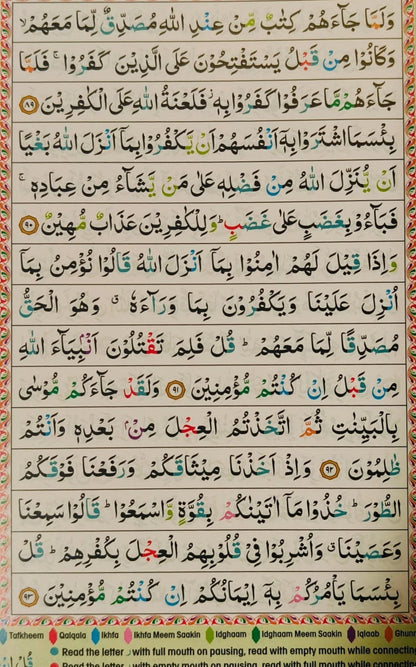 وَلَمَّا جَآءَهُمْ كِتٰبٌ مِّنْ عِنْدِ اللّٰهِ مُصَدِّقٌ لِّمَا مَعَهُمْ ۙ
وَكَانُوْا مِنْ قَبْلُ يَسْتَفْتِحُوْنَ عَلَى الَّذِيْنَ كَفَرُوْا ۚ فَلَمَّا
جَآءَهُمْ مَّا عَرَفُوْا كَفَرُوْا بِهٖ ۫ فَلَعْنَةُ اللّٰهِ عَلَى الْكٰفِرِيْنَ ۸۹
بِئْسَمَا اشْتَرَوْا بِهٖۤ اَنْفُسَهُمْ اَنْ يَّكْفُرُوْا بِمَاۤ اَنْزَلَ اللّٰهُ بَغْيًا
اَنْ يُّنَزِّلَ اللّٰهُ مِنْ فَضْلِهٖ عَلٰى مَنْ يَّشَآءُ مِنْ عِبَادِهٖ ۚ
فَبَآءُوْ بِغَضَبٍ عَلٰى غَضَبٍ ؕ وَلِلْكٰفِرِيْنَ عَذَابٌ مُّهِيْنٌ ۹۰
وَاِذَا قِيْلَ لَهُمْ اٰمِنُوْا بِمَاۤ اَنْزَلَ اللّٰهُ قَالُوْا نُؤْمِنُ بِمَاۤ
اُنْزِلَ عَلَيْنَا وَيَكْفُرُوْنَ بِمَا وَرَآءَهٗ ۗ وَهُوَ الْحَقُّ
مُصَدِّقًا لِّمَا مَعَهُمْ ؕ قُلْ فَلِمَ تَقْتُلُوْنَ اَنْۢبِيَآءَ اللّٰهِ
مِنْ قَبْلُ اِنْ كُنْتُمْ مُّؤْمِنِيْنَ ۹۱ وَلَقَدْ جَآءَكُمْ مُّوْسٰى
بِالْبَيِّنٰتِ ثُمَّ اتَّخَذْتُمُ الْعِجْلَ مِنْۢ بَعْدِهٖ وَاَنْتُمْ
ظٰلِمُوْنَ ۹۲ وَاِذْ اَخَذْنَا مِيْثَاقَكُمْ وَرَفَعْنَا فَوْقَكُمُ
الطُّوْرَ ؕ خُذُوْا مَاۤ اٰتَيْنٰكُمْ بِقُوَّةٍ وَّاسْمَعُوْا ؕ قَالُوْا سَمِعْنَا
وَعَصَيْنَا ۗ وَاُشْرِبُوْا فِيْ قُلُوْبِهِمُ الْعِجْلَ بِكُفْرِهِمْ ؕ قُلْ
بِئْسَمَا يَاْمُرُكُمْ بِهٖۤ اِيْمَانُكُمْ اِنْ كُنْتُمْ مُّؤْمِنِيْنَ ۹۳
Tafkheem Qalqala Ikhfa Ikhfa Meem Saakin Idghaam Idghaam Meem Saakin Iqlaab Ghunn
Read the letter ر with full mouth on pausing, read with empty mouth while connecting